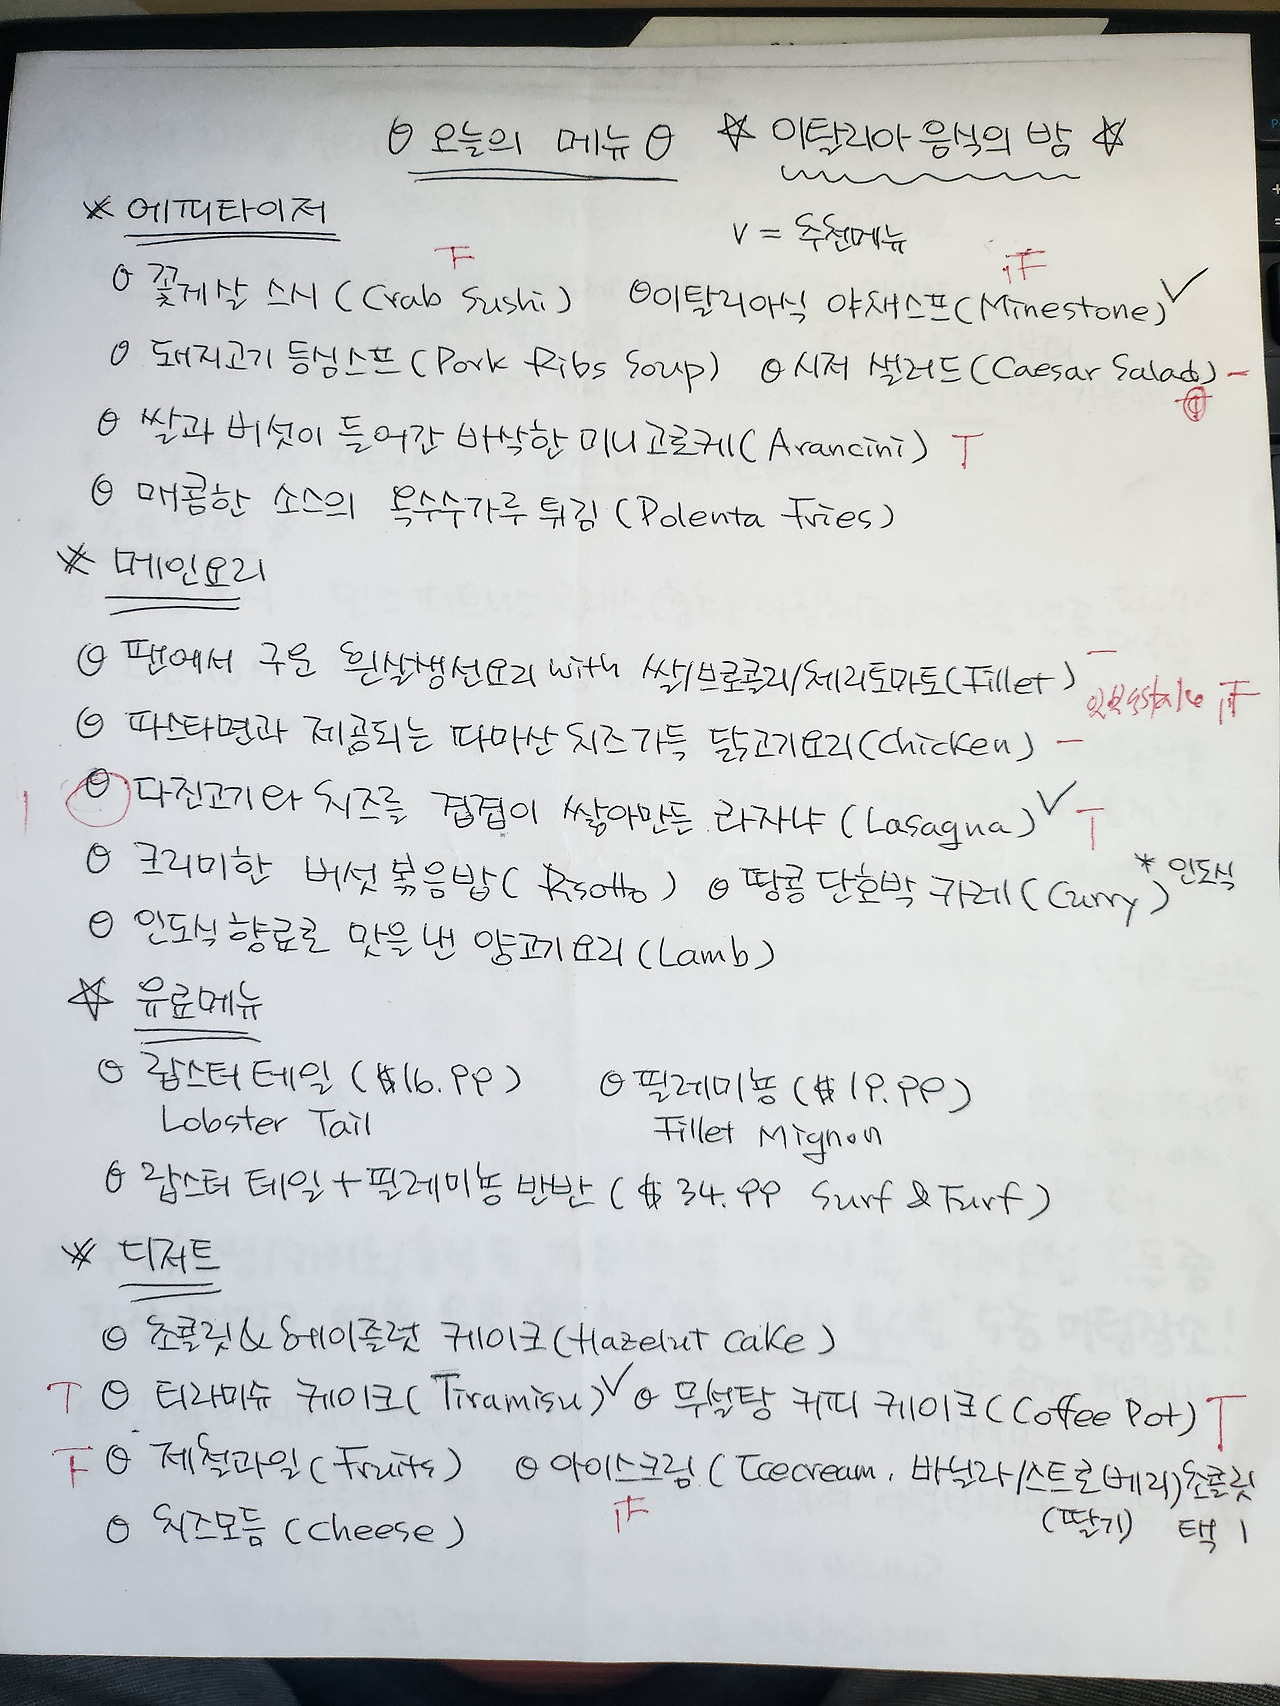 오늘의 메뉴 ☆ 이탈리아 음식의 밤 ☆
* 에피타이저
v = 추천메뉴
꽃게살 스시 (Crab Sushi) 이탈리아식 야채스프 (Minestone) ✓
돼지고기 등심스프 (Pork Ribs Soup) 시저 샐러드 (Caesar Salad) -
쌀과 버섯이 들어간 바삭한 미니고로케 (Arancini) T
매콤한 소스의 옥수수가루 튀김 (Polenta Fries)
* 메인요리
팬에서 구운 흰살생선요리 with 쌀/브로콜리/체리토마토 (Fillet) -
파스타면과 제공되는 파마산 치즈가득 닭고기요리 (Chicken) -
1 다진고기와 치즈를 겹겹이 쌓아만든 라자냐 (Lasagna) ✓ T
크리미한 버섯볶음밥 (Risotto) 땅콩 단호박 카레 (Curry) * 인도식
인도식 향료로 맛을 낸 양고기요리 (Lamb)
☆ 유료메뉴
랍스터 테일 ($16.99) 필레미뇽 ($19.99)
Lobster Tail Fillet Mignon
랍스터 테일 + 필레미뇽 반반 ($34.99 Surf & Turf)
* 디저트
초콜릿 & 헤이즐럿 케이크 (Hazelut Cake)
T 티라미슈 케이크 (Tiramisu) ✓ 무설탕 커피 케이크 (Coffee Pot) T
F 제철과일 (Fruits) 아이스크림 (Icecream, 바닐라/스트로베리) 초콜릿
치즈모듬 (Cheese) (딸기) 택 1